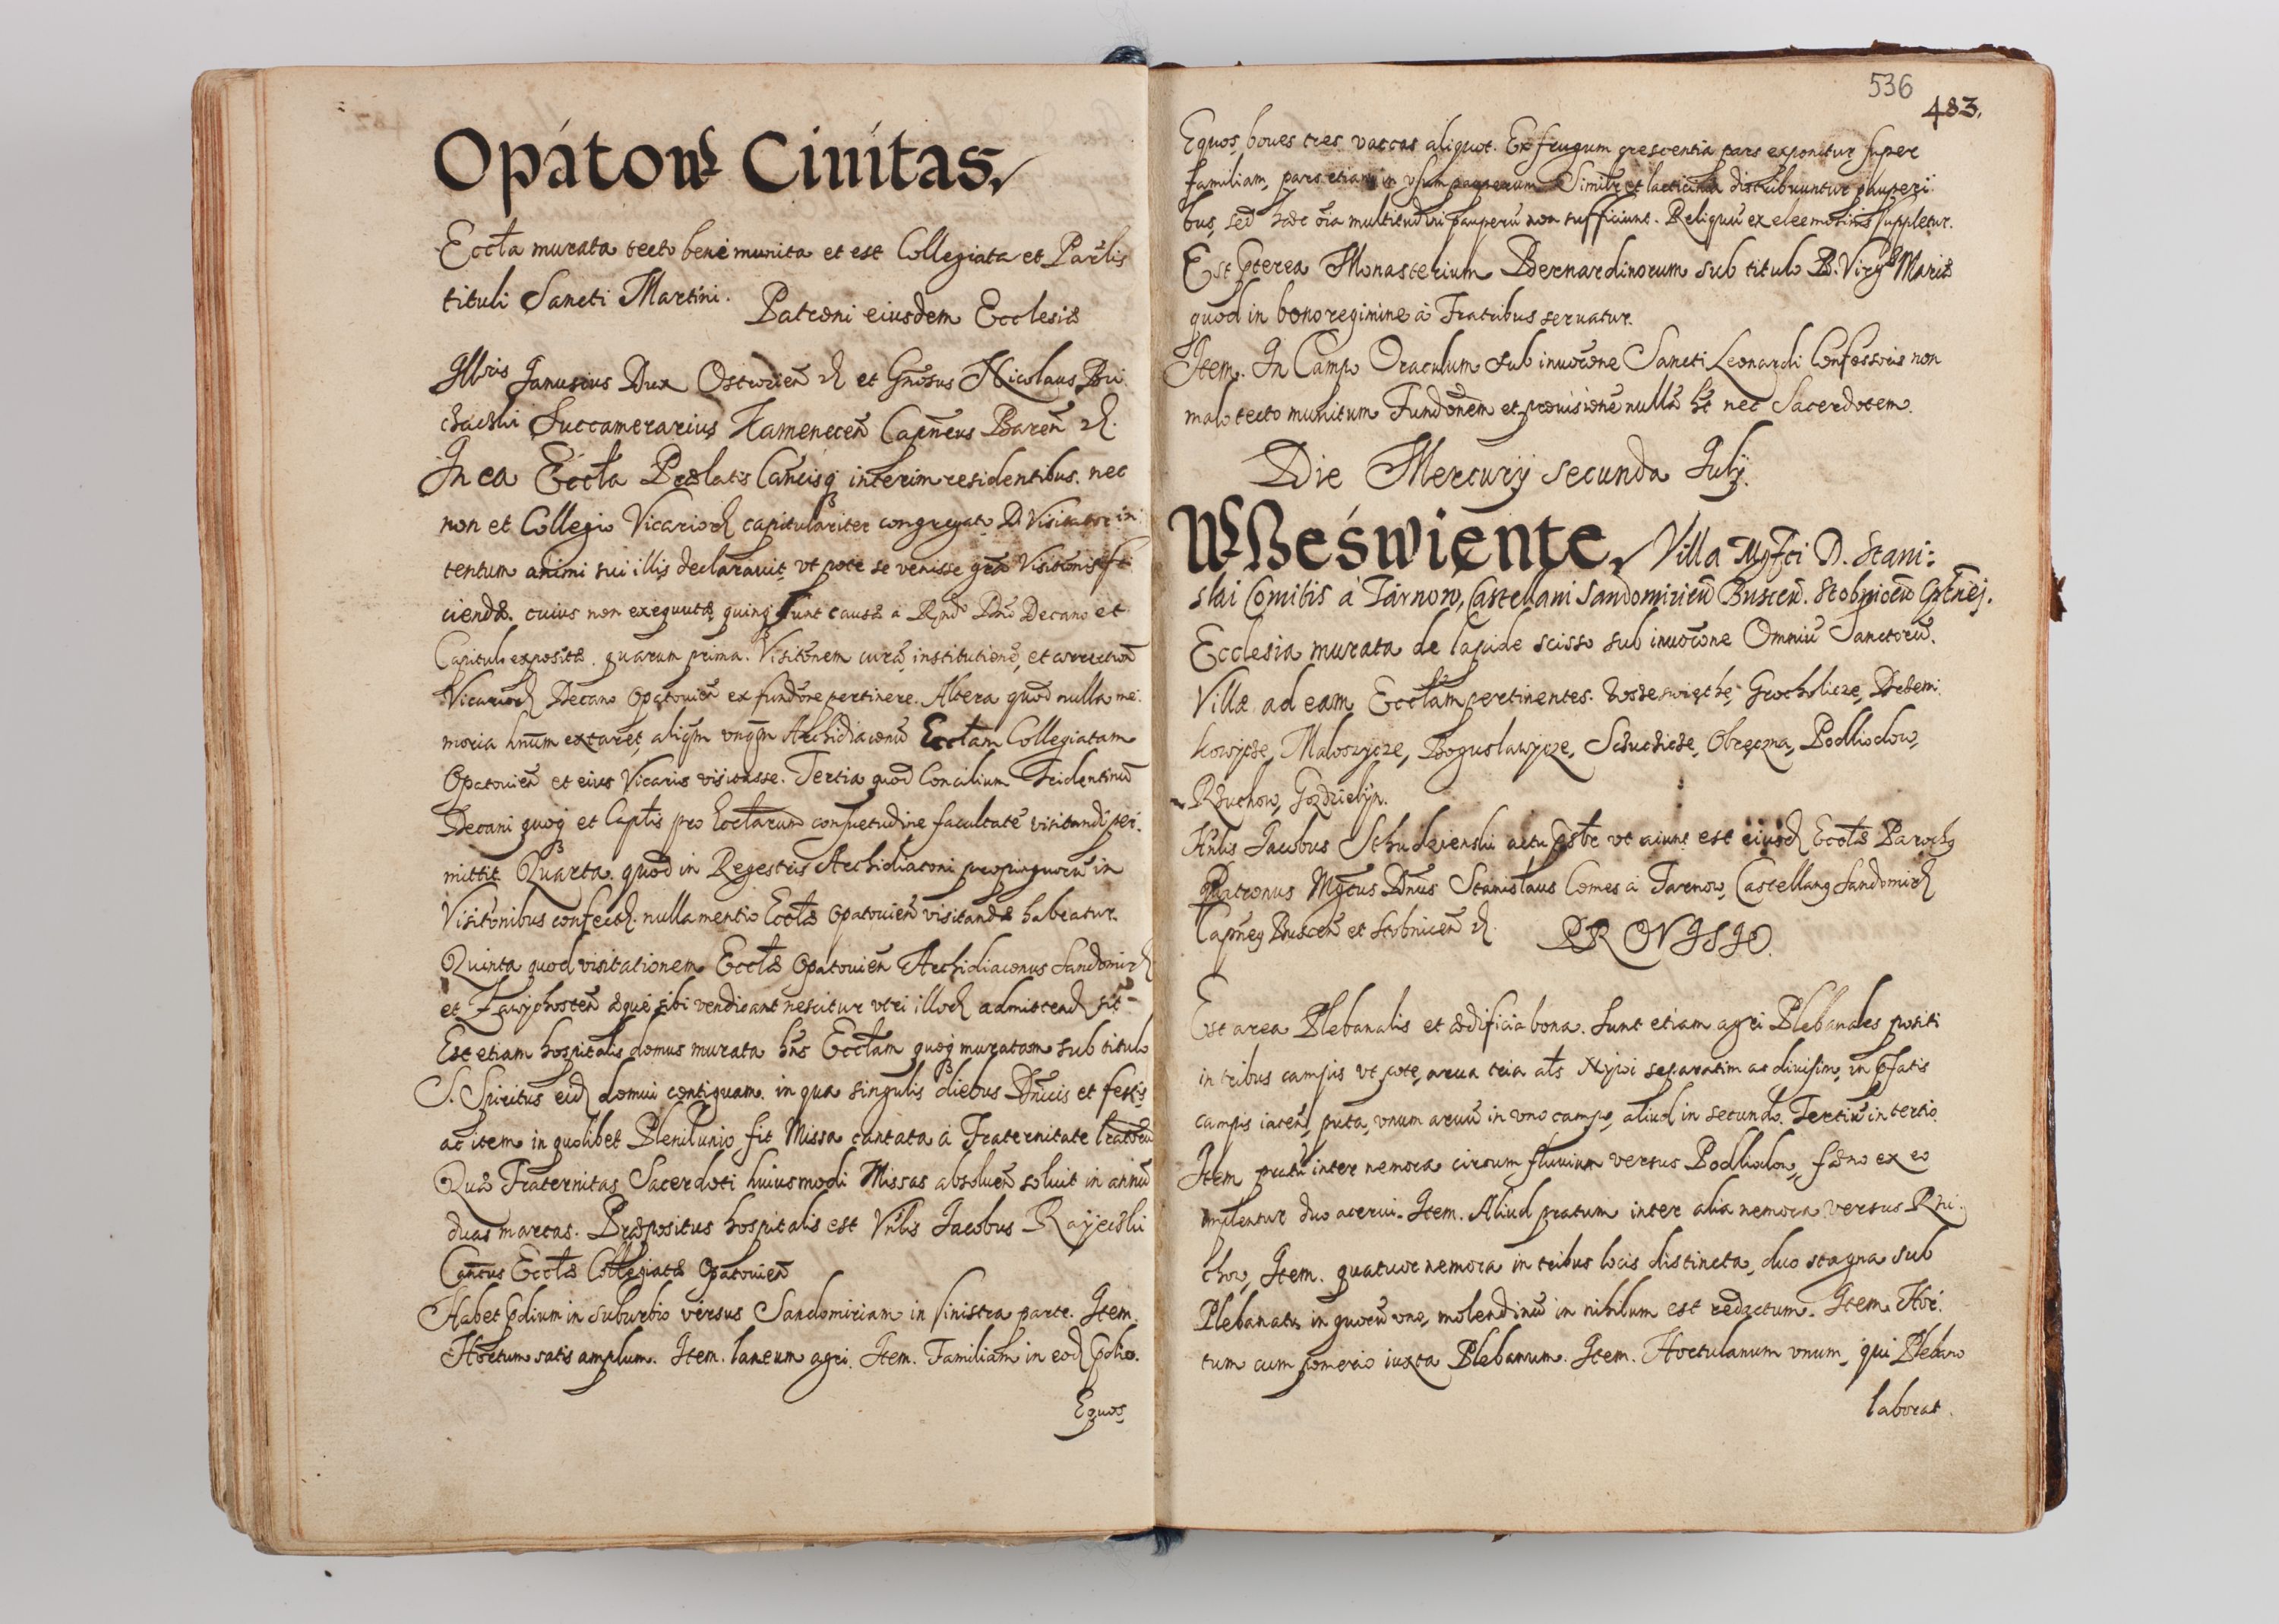 Opátow Ciuitas
Eccła murata tecto bene munita et est Collegiata et Parłis
tituli Sancti Martini.
Patroni eiusdem Ecclesiæ
Illris Janusius Dux Ostrorien̄ et Gn̄osus Nicolaus Bu
czaczki Succamerarius Kamenecen̄ Capn̄eus Baren̄
In ea Eccła Prælatis Can̄cisq interim residentibus. nec
non et Collegio Vicarior capitulariter congregato D. Visitator in
tentum animi sui illis declarauit, vt pote se venisse grā Visitōnis fa
ciendæ. cuius non exequutæ quinq sunt causæ a Rn̄do Dn̄o Decano et
Capitulo expositæ. quarum prima. Visitōnem curā institutionē, et correctionē
Vicarior Decano Opatouien̄ ex fundōne pertinere. Altera quod nulla me
moria hn̄um extaret, aliqm vnqm Archidiaconū Ecctam Collegiatam
Opatouien̄ et eius Vicarios visitasse. Tertia quod Concilium Tridentinū
Decani quoq et Captis pro Ecctarum consuetudine facultatē visitandi per
mittit. Quarta. quod in Regestris Archidiaconi propinquorū in
Visitōnibus confect. nulla mentio Eccłæ Opatouien̄ visitandæ habeatur.
Quinta quod visitationem Eccłæ Opatouien̄ Archidiaconus Sandomir
et Zawychosten̄ æque sibi vendicant nescitur vtri illor admittend sit
Est etiam hospitalis domus murata hn̄s Ecctam quoq muratam sub titulo
S. Spiritus eid domui contiguam. in qua singulis diebus Dn̄icis et festis
ac item in quolibet Plenilunio fit Missa cantata à Fraternitate
Quæ Fraternitas Sacerdoti huiusmodi Missas absoluen̄ soluit in annū
duas marcas. Præpositus hospitalis est Vn̄lis Jacobus Rayecski
Can̄cus Eccłæ Collegiatæ Opatouien̄
Habet pdium in suburbio versus Sandomiriam in sinistra parte. Item.
Hortum satis amplum. Item. laneum agri. Item. Familiam in eod pdio.
Equos
536
483.
Equos, boues tres vaccas aliquot. Ex frugum crescentia pars exponitur super
familiam, pars etiam in vsum pauperum. Similr et lacticinia distribuuntur pauperi
bus, sed hæc oīa multitudini pauperū non sufficiunt. Reliquū ex eleemosinis suppletur.
Est pterea Monasterium Bernardinorum sub titulo B. Virg Mariæ
quod in bono regimine à Fratribus seruatur.
Item. In Campo Oraculum sub inuocōne Sancti Leonardi Confessoris non
malo tecto munitum Fundōnem et prouisionē nullā ht nec Sacerdotem.
Die Mercurij secunda Julij.
Wszeświente, Villa Mgfci D. Stani:
slai Comitis à Tárnow, Castellani Sandomirien̄ Buscen̄. Stobnicen̄ Cptnej.
Ecclesia murata de lapide scisso sub inuocōne Omniū Sanctorū.
Villæ ad eam Ecctam pertinentes. Grocholicze, Dzeb
kowycze, Malowycze, Boguslawycze, Sczuczicze, Obręczna, Podlodow,
Rzuchow, Gozdzielyn.
Hn̄lis Jacobus Schudzienski actu pstr vt aiunt est eiusd Eccłæ Paroch
Patronus Mgcus Dn̄us Stanislaus Comes à Tarnow, Castellang Sandomir
Capn̄eg Buscen̄ et Stobnicen̄
PROVISIO.
Est area Plebanalis et ædificia bona. Sunt etiam agri Plebanales positi
in tribus campis vt pote, arua tria als Nywi separatim ac divisim, in pfatis
campis iacen̄, puta, vnum aruū in vno campo, aliud in secundo. Tertiū in tertio.
Item pratū inter nemora circum fluuium versus Podlodow, fæno ex eo
implentur duo acerui. Item. Aliud pratum inter alia nemora versus Rzu
chow, Item. quatuor nemora in tribus locis distincta, duo stagna sub
Plebanatu in quorū vno, molendinū in nihilum est redactum. Item. Hor
tum cum pomerio iuxta Plebanum. Item. Hortulanum vnum, qui Plebano
laborat.